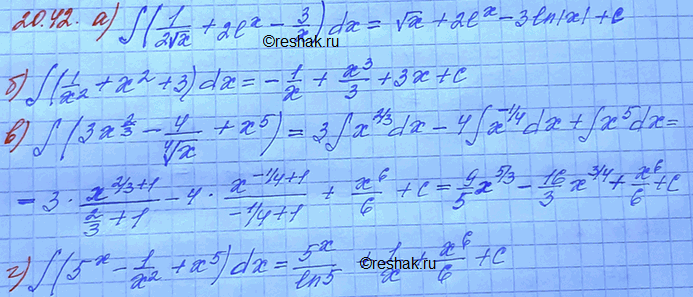 20.42. а) ∫(1/(2√x) + 2e^x - 3/x) dx = √x + 2e^x - 3ln|x| + c
©reshak.ru
б) ∫(1/x^2 + x^2 + 3) dx = -1/x + x^3/3 + 3x + c
в) ∫(3x^(2/3) - 4/∜x + x^5) = 3∫x^(2/3) dx - 4∫x^(-1/4) dx + ∫x^5 dx =
= 3 · x^(2/3+1)/(2/3+1) - 4 · x^(-1/4+1)/(-1/4+1) + x^6/6 + c = 9/5 x^(5/3) - 16/3 x^(3/4) + x^6/6 + c
г) ∫(5^x - 1/x^2 + x^5) dx = 5^x/ln5 + 1/x + x^6/6 + c
©reshak.ru